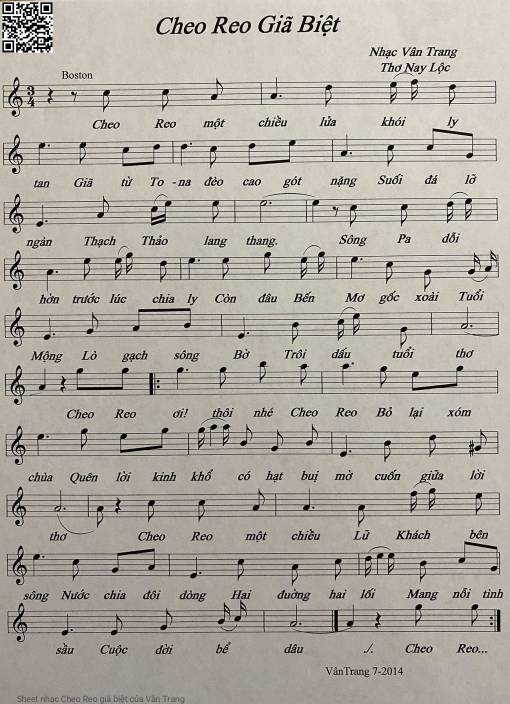 Cheo Reo Giã Biệt
Nhạc Vân Trang
Thơ Nay Lộc
Boston
3
4
Cheo Reo một chiều lửa khói ly
tan Giã từ To-na đèo cao gót nặng Suối đá lỡ
ngàn Thạch Thảo lang thang. Sông Pa dỗi
hờn trước lúc chia ly Còn đâu Bến Mơ gốc xoài Tuổi
Mộng Lò gạch sông Bờ Trôi dấu tuổi thơ
Cheo Reo ơi! thôi nhé Cheo Reo Bỏ lại xóm
chùa Quên lời kinh khổ có hạt buị mờ cuốn giữa lời
thơ Cheo Reo một chiều Lữ Khách bên
sông Nước chia đôi dòng Hai đuờng hai lối Mang nỗi tình
sầu Cuộc đời bể dâu ./. Cheo Reo...
VânTrang 7-2014
Sheet nhạc Cheo Reo giã biệt của Vân Trang